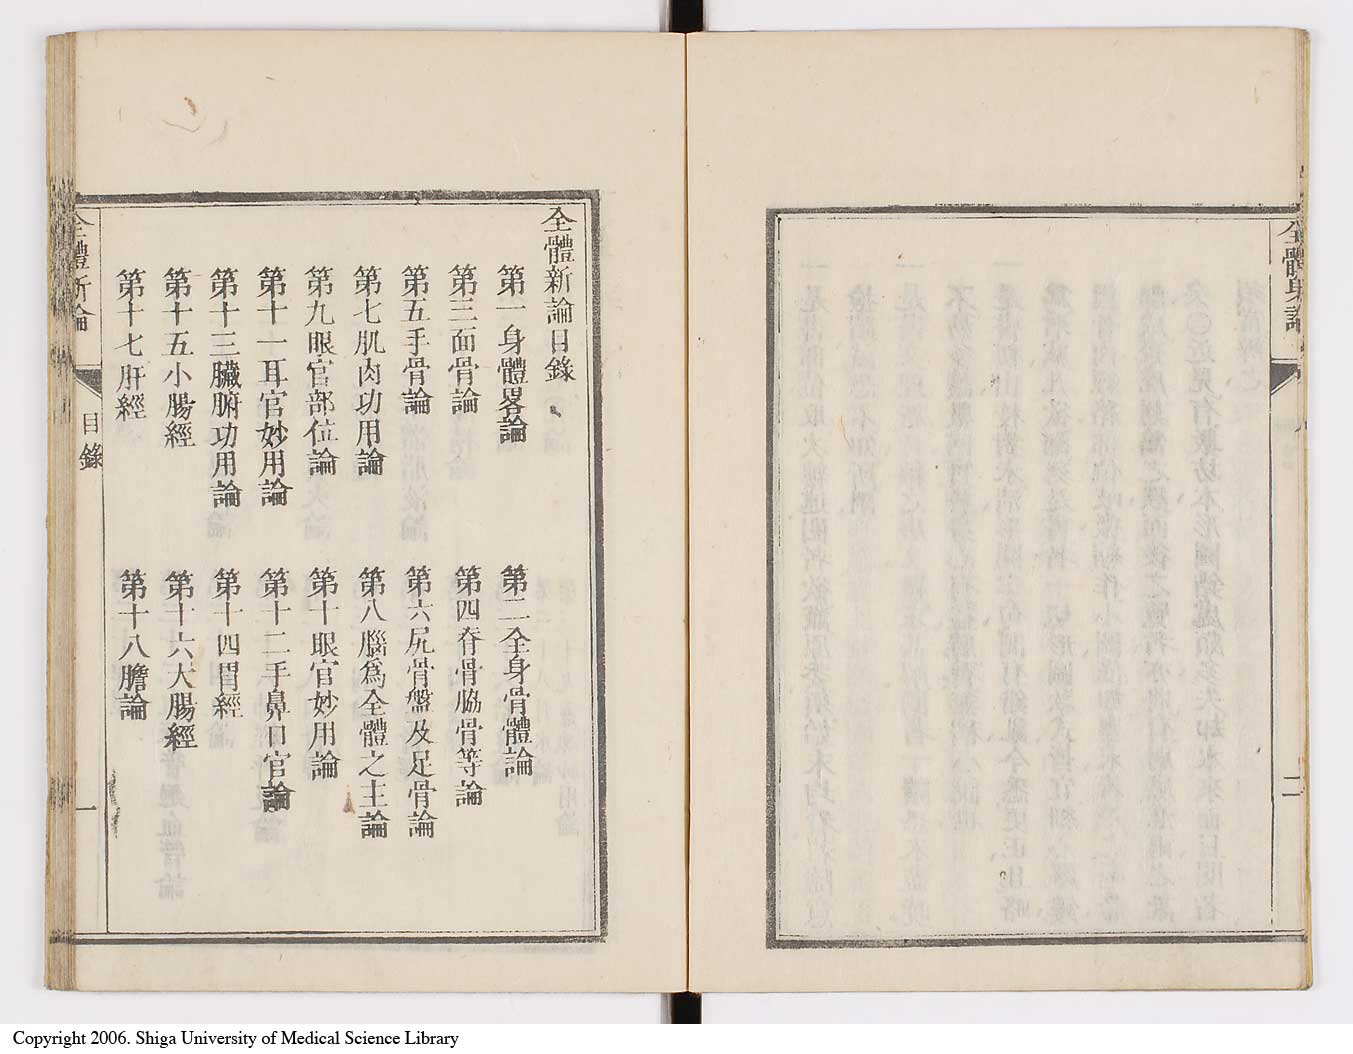 全體新論
二
全體新論目錄
第一身體畧論
第二全身骨體論
第三面骨論
第四脊骨脇骨等論
第五手骨論
第六尻骨盤及足骨論
第七肌肉功用論
第八腦爲全體之主論
第九眼官部位論
第十眼官妙用論
第十一耳官妙用論
第十二手鼻口官論
第十三臟腑功用論
第十四胃經
第十五小腸經
第十六大腸經
第十七肝經
第十八膽論
全體新論
目錄
一
Copyright 2006. Shiga University of Medical Science Library